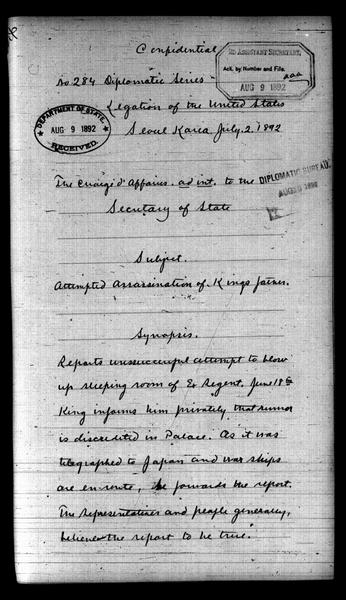 Confidential
2D ASSISTANT SECRETARY,
Ack. by Number and File.
AUG 9 1892
No. 284 Diplomatic Series
DEPARTMENT OF STATE,
AUG 9 1892
RECEIVED.
Legation of the United States
Seoul Korea July. 2. 1892
The Chargé d'Affaires. ad int. to the
DIPLOMATIC BUREAU.
AUG 1892
Secretary of State
Subject.
Attempted Assassination of Kings father.
Synopsis.
Reports unsuccessful attempt to blow
up sleeping room of Ex Regent, June 18th
King informs him privately that rumor
is discredited in Palace. As it was
telegraphed to Japan and war ships
are en route, he forwards the report.
The representatives and people generally,
believe the report to be true.